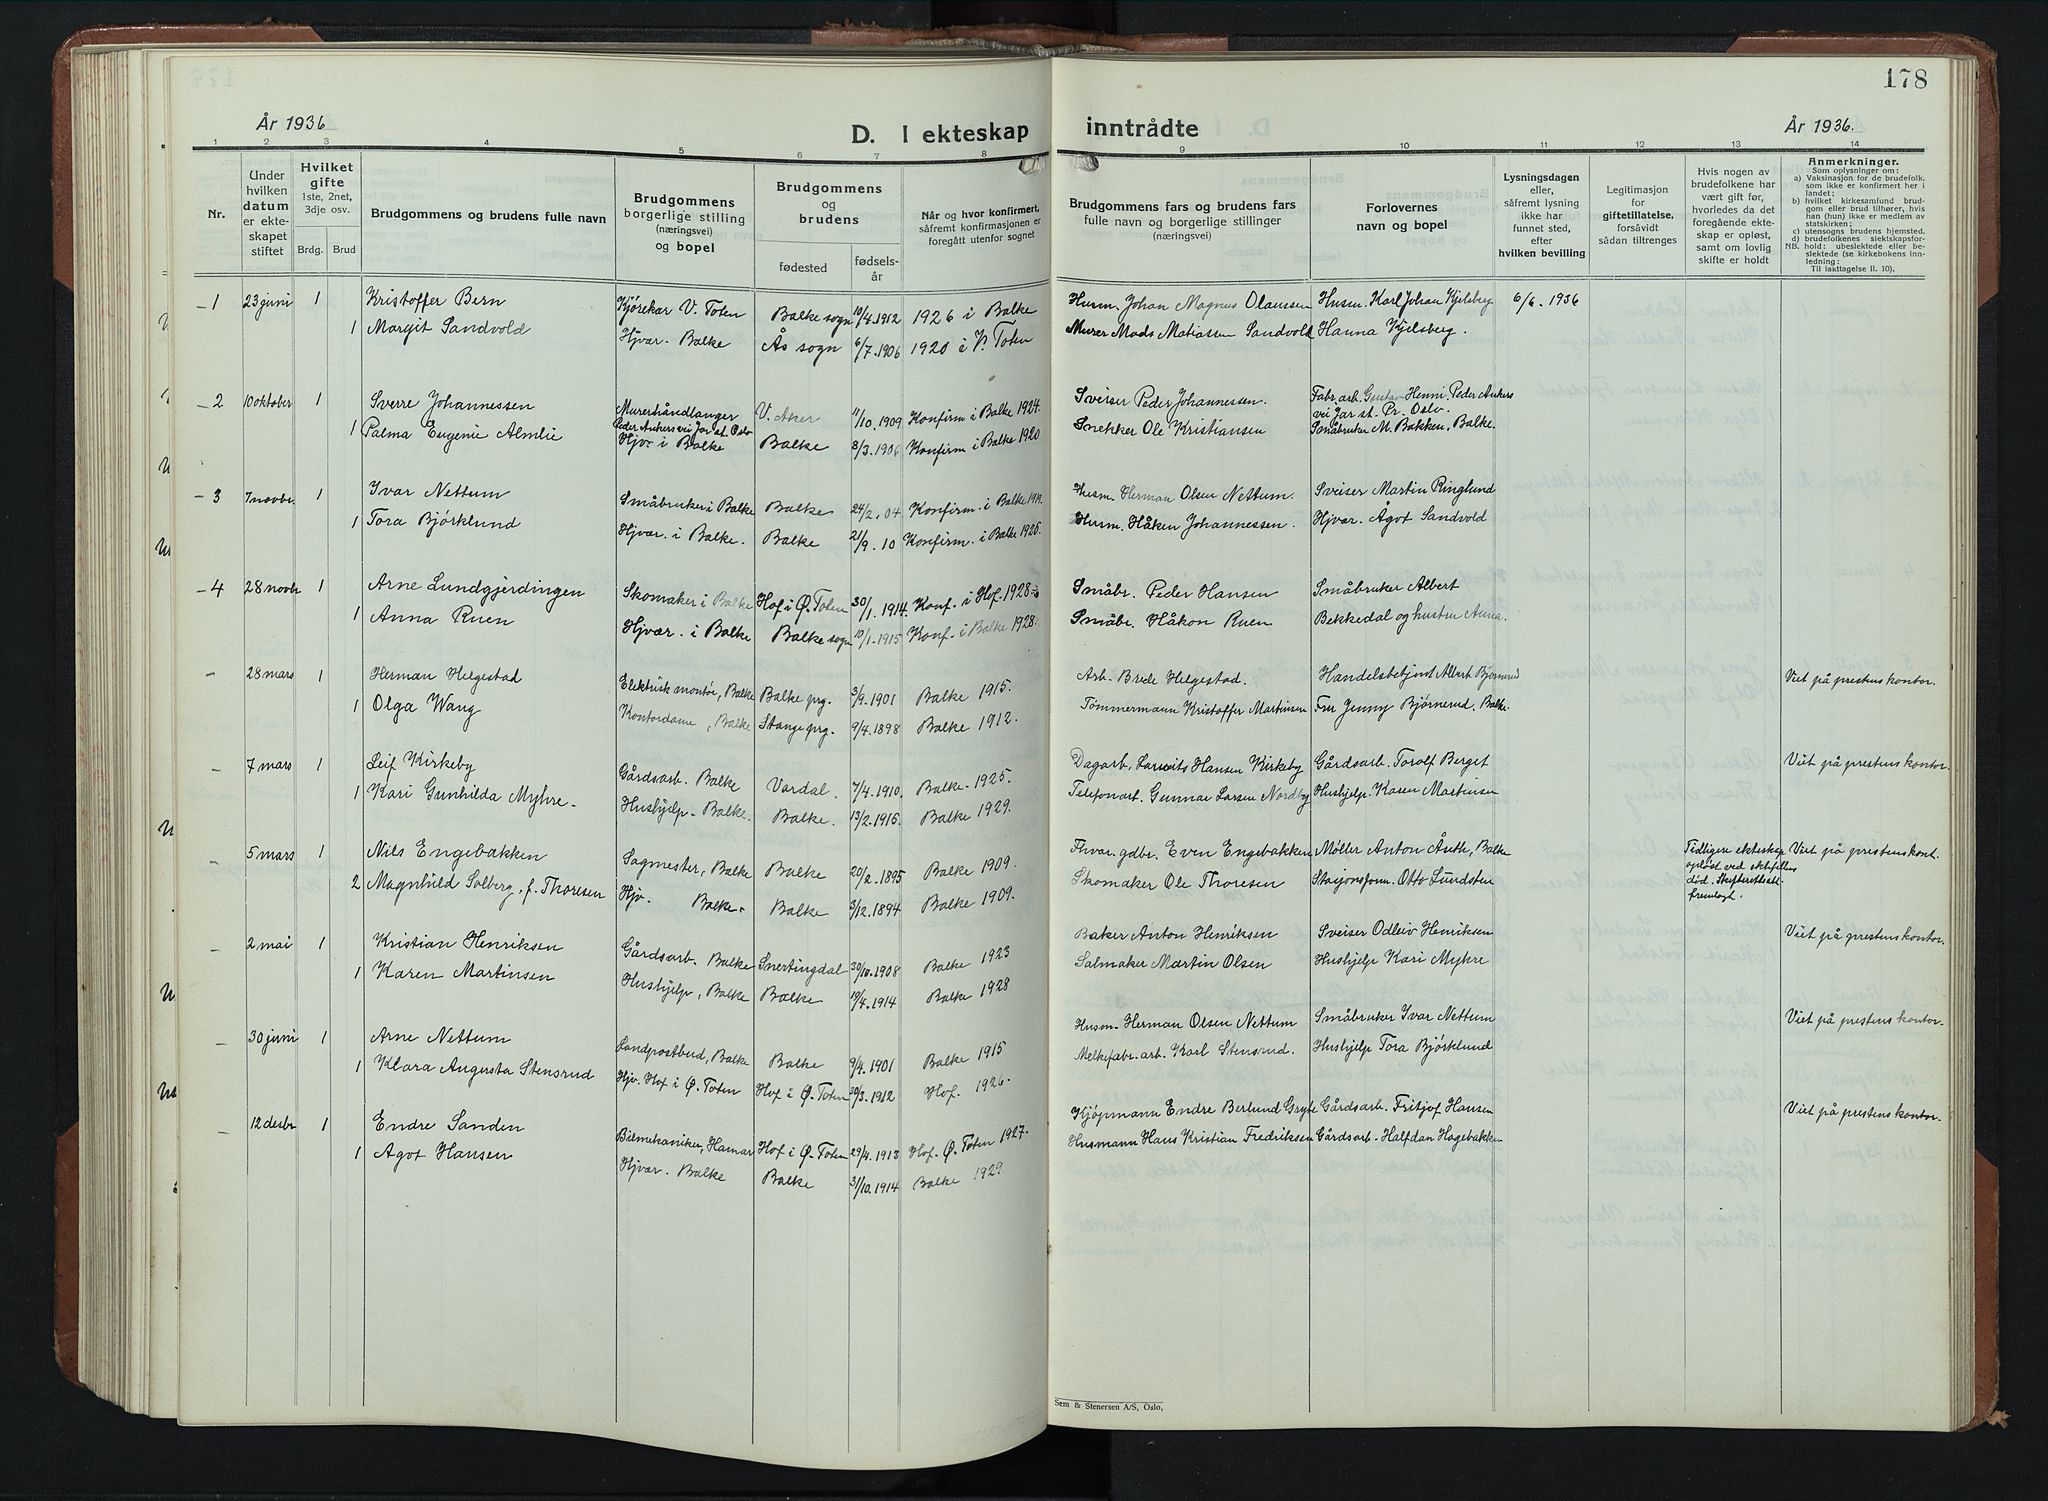 178
År 1936
D. I ekteskap inntrådte
År 1936.
1 2 3 4 5 6 7 8 9 10 11 12 13 14
Nr.
Under hvilken datum er ekteskapet stiftet
Hvilket gifte
1ste, 2net, 3dje osv.
Brdg. Brud
Brudgommens og brudens fulle navn
Brudgommens borgerlige stilling (næringsvei) og bopel
Brudgommens og brudens
fødested
fødselsår
Når og hvor konfirmert, såfremt konfirmasjonen er foregått utenfor sognet
Brudgommens fars og brudens fars fulle navn og borgerlige stillinger (næringsvei)
Forlovernes navn og bopel
Lysningsdagen eller, såfremt lysning ikke har funnet sted, efter hvilken bevilling
Legitimasjon for giftetillatelse, forsåvidt sådan tiltrenges
Hvis nogen av brudefolkene har vært gift før, hvorledes da det foregående ekteskap er opløst, samt om lovlig skifte er holdt
Anmerkninger.
Som oplysninger om:
a) Vaksinasjon for de brudefolk, som ikke er konfirmert her i landet;
b) hvilket kirkesamfund brudgom eller brud tilhører, hvis han (hun) ikke er medlem av statskirken;
c) utensogns brudens hjemsted.
d) brudefolkenes slektskapsforhold: ubeslektede eller beslektede (se kirkebokens innledning:
NB. Til iakttagelse II. 10).
1 23 juni 1 Kristoffer Bern Kjørekar V. Toten Balke sogn 10/4. 1912 1926 i Balke Husm. Johan Magnus Olaussen Husm. Karl Johan Kjelsberg 6/6. 1936
1 Margit Sandvold Hjvær. Balke Ås sogn 6/7. 1906 1920 i V. Toten Murer Mads Matiassen Sandvold Hanna Kjelsberg.
2 10 oktober 1 Sverre Johannessen Murerhåndlanger Peder Ankers vei Jar st. Oslo V. Aker 11/10. 1909 Konfirm i Balke 1924. Sveiser Peder Johannessen. Fabr. arb. Gustav Henni Peder Ankers vei Jar st. Pr. Oslo.
1 Palma Eugenie Almlie Hjvr i Balke Balke 8/3. 1906 Konfirm i Balke 1920 Snekker Ole Kristiansen Småbruker M. Bakken, Balke.
3 7 novbr. 1 Ivar Nettum Småbruker i Balke Balke 24/2. 04 Konfirm. i Balke 1919. Husm. Herman Olsen Nettum. Sveiser Martin Ringlund
1 Tora Bjørklund Hjvær. i Balke. Balke 21/9. 10 Konfirm. i Balke 1925. Husm. Håken Johannessen. Hjvær. Ågot Sandvold
4 28 novbr 1 Arne Lundgjerdingen Skomaker i Balke Hof i Ø. Toten 30/1. 1914. Konf. i Hof. 1928 Småbr. Peder Hansen Småbruker Albert
1 Anna Ruen Hjvær. i Balke Balke sogn 10/1. 1915 Konf. i Balke 1928. Småbr. Håkon Ruen Bekkedal og hustru Anna.
28 mars 1 Herman Helgestad Elektrisk montør, Balke Balke prg. 3/9. 1901 Balke 1915. Arb. Brede Helgestad. Handelsbetjent Albert Bjørnerud Viet på prestens kontor.
1 Olga Wang Kontordame, Balke Stange prg. 9/4. 1898 Balke 1912. Tømmermann Kristoffer Martinsen Fru Jenny Bjørnerud, Balke.
7 mars 1 Leif Kirkeby Gårdsarb. Balke Vardal. 7/4. 1910. Balke. 1925. Dagarb. Laurits Hansen Kirkeby Gårdsarb. Torolf Berget Viet på prestens kontor.
1 Kari Gunhilda Myhre. Hushjelp. Balke. Balke. 13/2. 1915. Balke 1929. Telefonarb. Gunnar Larsen Nordby Hushjelp. Karen Martinsen
5 mars 1 Nils Engebakken Sagmester, Balke Balke 20/2. 1895 Balke 1909. Fhvar. gdbr. Even Engebakken Møller Anton Åseth, Balke Tidligere ekteskap opløst ved ektefelles død. Skifteretsatt. fremlagt. Viet på prestens kont.
2 Magnhild Solberg, f. Thoresen Hjv. Balke. Balke 3/12. 1894 Balke 1909. Skomaker Ole Thoresen Stasjonsform. Otto Lundsten
2 mai 1 Kristian Henriksen Gårdsarb. Balke Snertingdal 30/10. 1908 Balke 1923 Baker Anton Henriksen Sveiser Odleiv Henriksen Viet på prestens kontor.
1 Karen Martinsen Hushjelp, Balke Balke 19/4. 1914 Balke 1928 Salmaker Martin Olsen Hushjelp Kari Myhre
30 juni 1 Arne Nettum Landpostbud, Balke Balke 9/4. 1901 Balke 1915 Husm. Herman Olsen Nettum Småbruker Ivar Nettum Viet på prestens kontor.
1 Klara Augusta Stensrud Hjv. Hof i Ø. Toten Hof i Ø. Toten 30/3. 1912 Hof. 1926. Melkefabr. arb. Karl Stensrud. Hushjelp Tora Bjørklund
12 desbr 1 Endre Sanden Bilmekaniker, Hamar Hof i Ø. Toten 29/4. 1913 Hof. Ø. Toten 1927. Kjøpmann Endre Berlund Gryte Gårdsarb. Fritjof Hansen Viet på prestens kontor.
1 Agot Hansen Hjvær. Balke Balke 31/10. 1914 Balke 1929 Husmann Hans Kristian Fredriksen Gårdsarb. Halfdan Hagebakken
Sem & Stenersen A/S, Oslo,